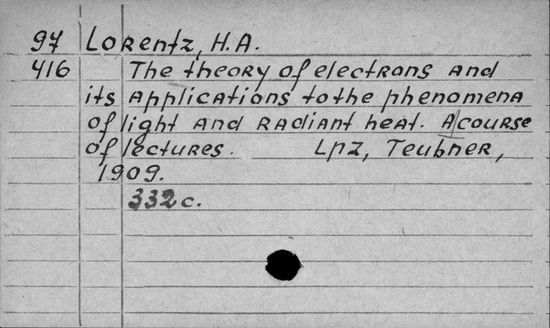 97 Lorentz, H.A.
416 The theory of electrons and
its applications to the phenomena
of light and radiant heat. A course
of lectures. Lpz, Teubner,
1909.
332 c.